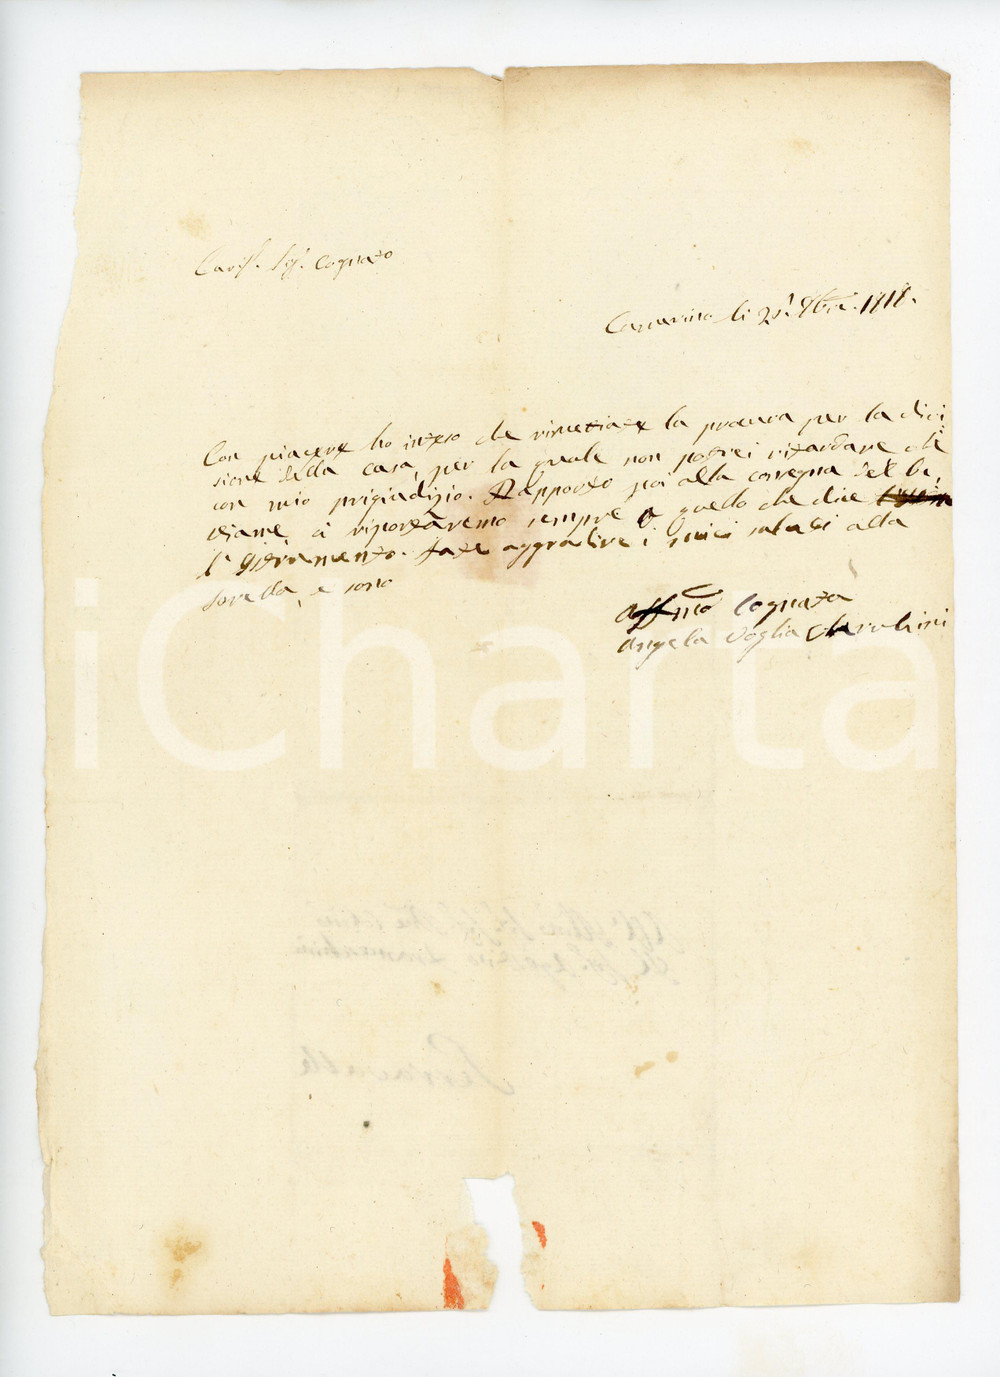 Caris. Sig. Cognato
Camerino li 21. 8bre. 1818.
Con piacere ho inteso che rimettiate la procura per la divi
sione della casa, per la quale non potrei ritardare che
con mio prigiudizio. Rapporto poi alla consegna del bi
ciame, ci riportaremo sempre a quello che dice
l'Istramento. Fate aggradire i miei saluti alla
sorella, e sono
affma Cognata
Angela Voglia Cherubini
iCharta
Serravalle